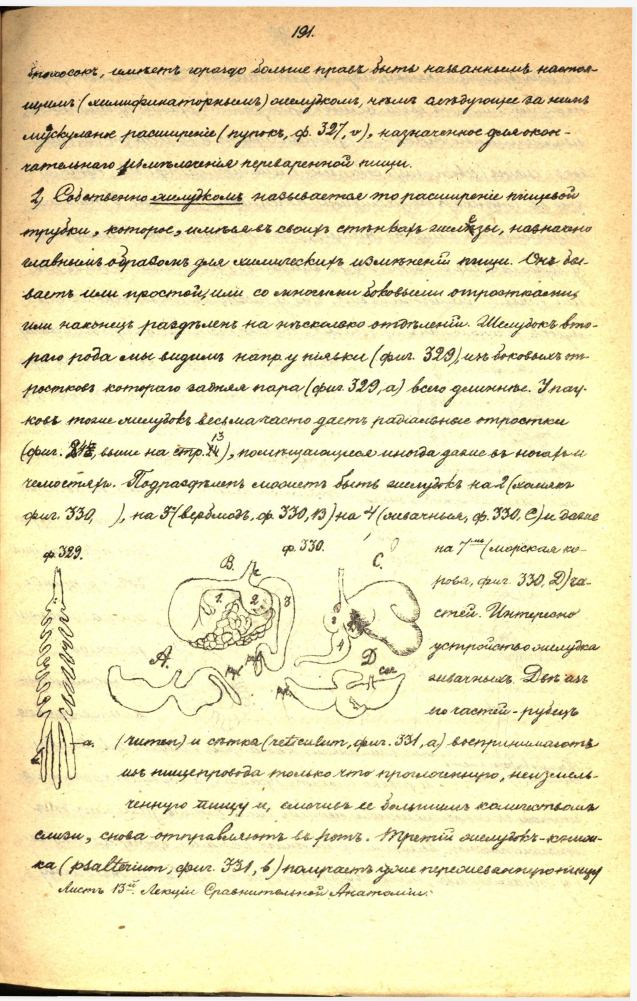 191.
сносокъ, имѣетъ гораздо больше правъ быть названнымъ настоя-
щимъ (химификаторнымъ) желудкомъ, чѣмъ слѣдующее за нимъ
мускульное расширеніе (пупокъ, ф. 327, v), назначенное для окон-
чательнаго измѣльченія переваренной пищи.
2) Собственно желудкомъ называется то расширеніе пищевой
трубки, которое, имѣя въ своихъ стѣнкахъ железы, назначено
главнымъ образомъ для химическихъ измѣненій пищи. Онъ бы-
ваетъ или простой, или со многими боковыми отростками,
или наконецъ раздѣленъ на нѣсколько отдѣленій. Желудокъ вто-
раго рода мы видимъ напр. у піявки (фиг. 329), изъ боковыхъ от-
ростковъ котораго задняя пара (фиг. 329, а) всего длиннѣе. У пау-
ковъ тоже желудокъ весьма часто даетъ радіальные отростки
(фиг. выше на стр. 13), помѣщающіеся иногда даже въ ногахъ и
челюстяхъ. Подраздѣленъ можетъ быть желудокъ на 2 (хомякъ
фиг. 330, ), на 3 (верблюдъ, ф. 330, B) на 4 (жвачныя, ф. 330, C) и даже
ф. 329.
ф. 330.
B.
C.
A.
D
1.
2.
3
4
a.
на 7 (морская ко-
рова, фиг. 330, D) ча-
стей. Интересно
устройство желудка
жвачныхъ. Двѣ изъ
его частей - рубецъ
(rumen) и сѣтка (reticulum, фиг. 331, а) воспринимаютъ
изъ пищепровода только что проглоченную, неизмель-
ченную пищу и, смочивъ ее большимъ количествомъ
слизи, снова отправляютъ въ ротъ. Третій желудокъ - книж-
ка (psalterium, фиг. 331, b) получаетъ уже пережеванную пищу
Листъ 13й Лекціи Сравнительной Анатоміи.